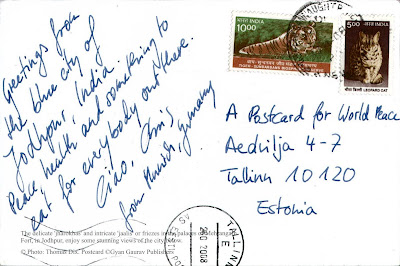 Greetings from
the blue city of
Jodhpur, India.
Peace, health and something to
eat for everybody out there.
Ciao, Chris
from Munich, Germany
भारत INDIA
10.00
TIGER-SUNDARBANS BIOSPHERE
भारत INDIA
5.00
LEOPARD CAT
A Postcard for World Peace
Aedvilja 4-7
Tallinn 10120
Estonia
The delicate 'jharokhas' and intricate 'jaalis' or friezes in the palaces of Mehrangarh
Fort, in Jodhpur, enjoy some stunning views of the city below.
© Photo: Thomas Dix. Postcard ©Gyan Gaurav Publishers
TALLINN
2008